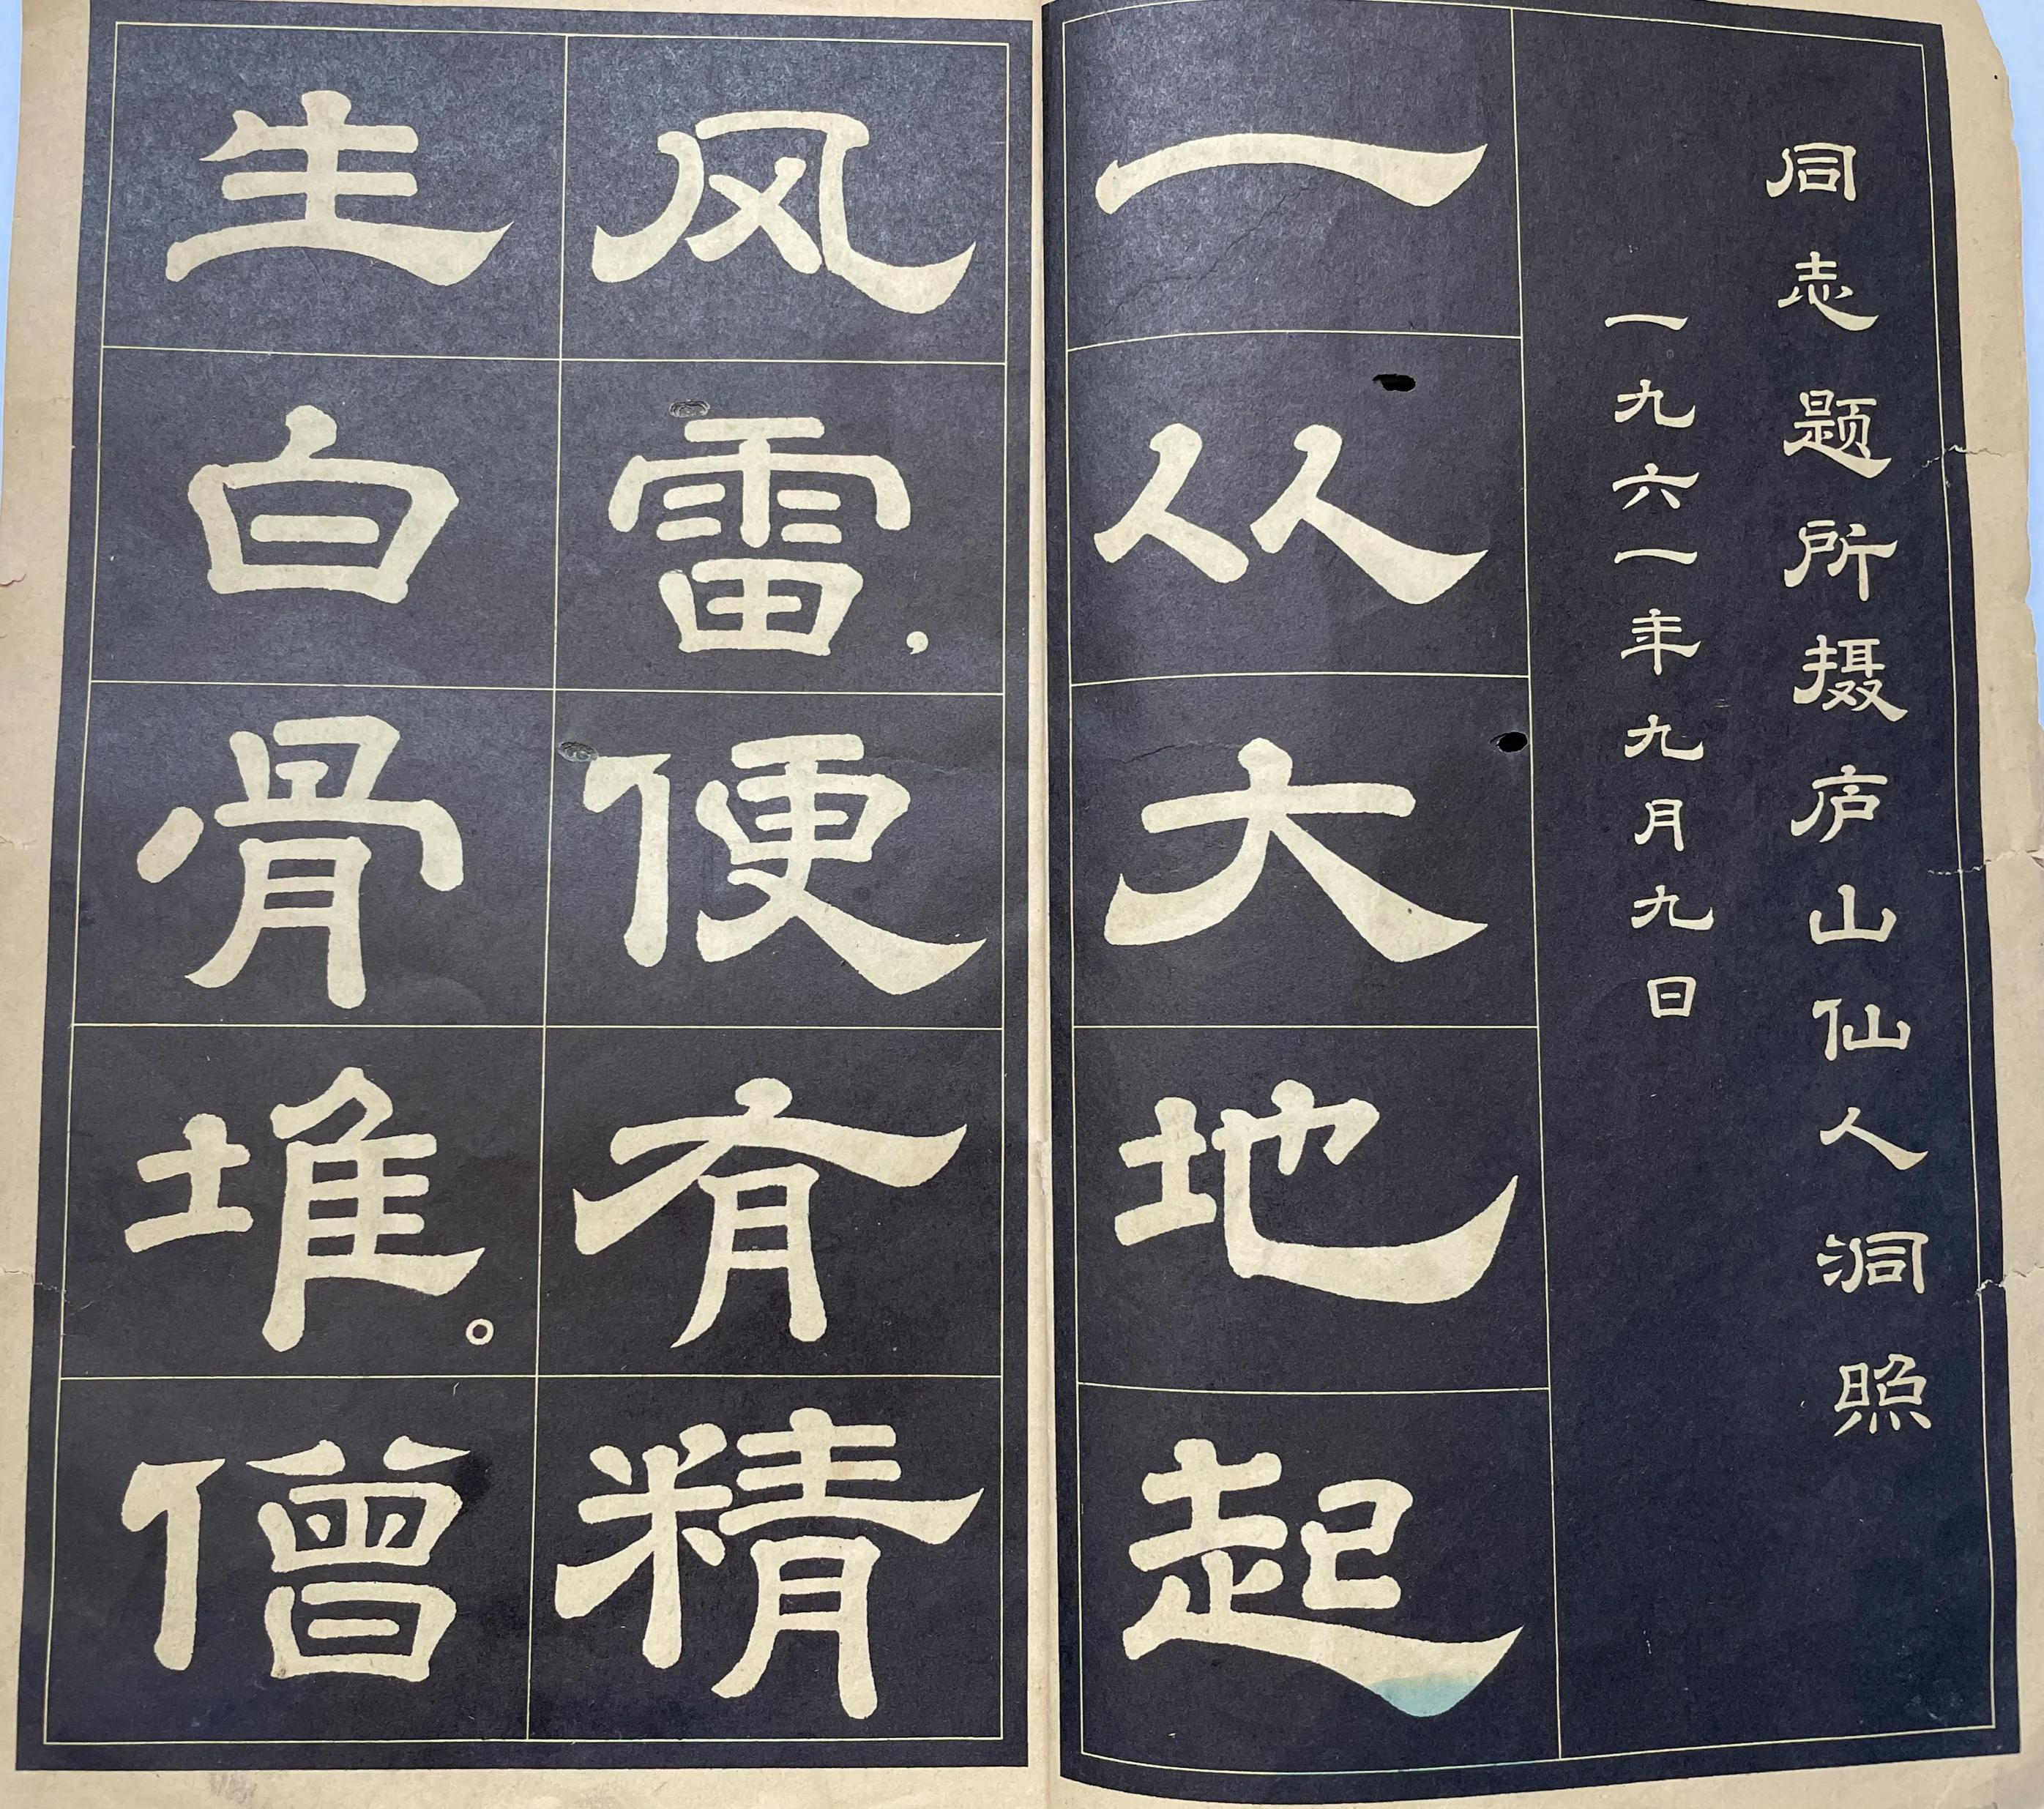 同志题所摄庐山仙人洞照
一九六一年九月九日
一从大地起
风雷，便有精
生白骨堆。僧